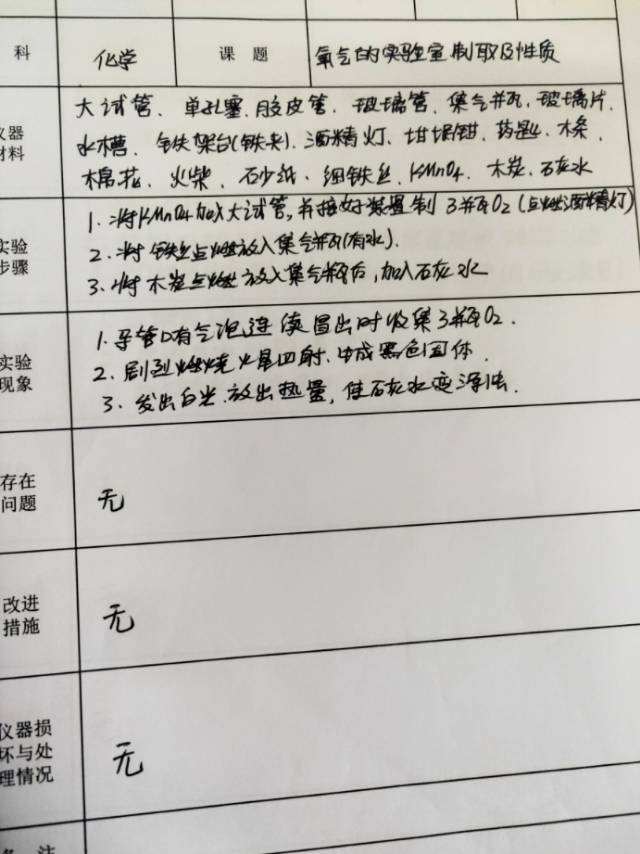 科 化学 课题 氧气的实验室制取及性质
仪器材料
大试管、单孔塞、胶皮管、玻璃管、集气瓶、玻璃片、
水槽、铁架台(铁夹)、酒精灯、坩埚钳、药匙、木条
棉花、火柴、石少纸、细铁丝、KMnO4、木炭、石灰水
实验步骤
1. 将KMnO4加入大试管,并接好装置制3瓶O2(点燃酒精灯)
2. 将铁丝点燃放入集气瓶(有水).
3. 将木炭点燃放入集气瓶后,加入石灰水
实验现象
1. 导管口有气泡连续冒出时收集3瓶O2.
2. 剧烈燃烧火星四射.生成黑色固体.
3. 发出白光.放出热量,使石灰水变浑浊.
存在问题
无
改进措施
无
仪器损坏与处理情况
无
备注